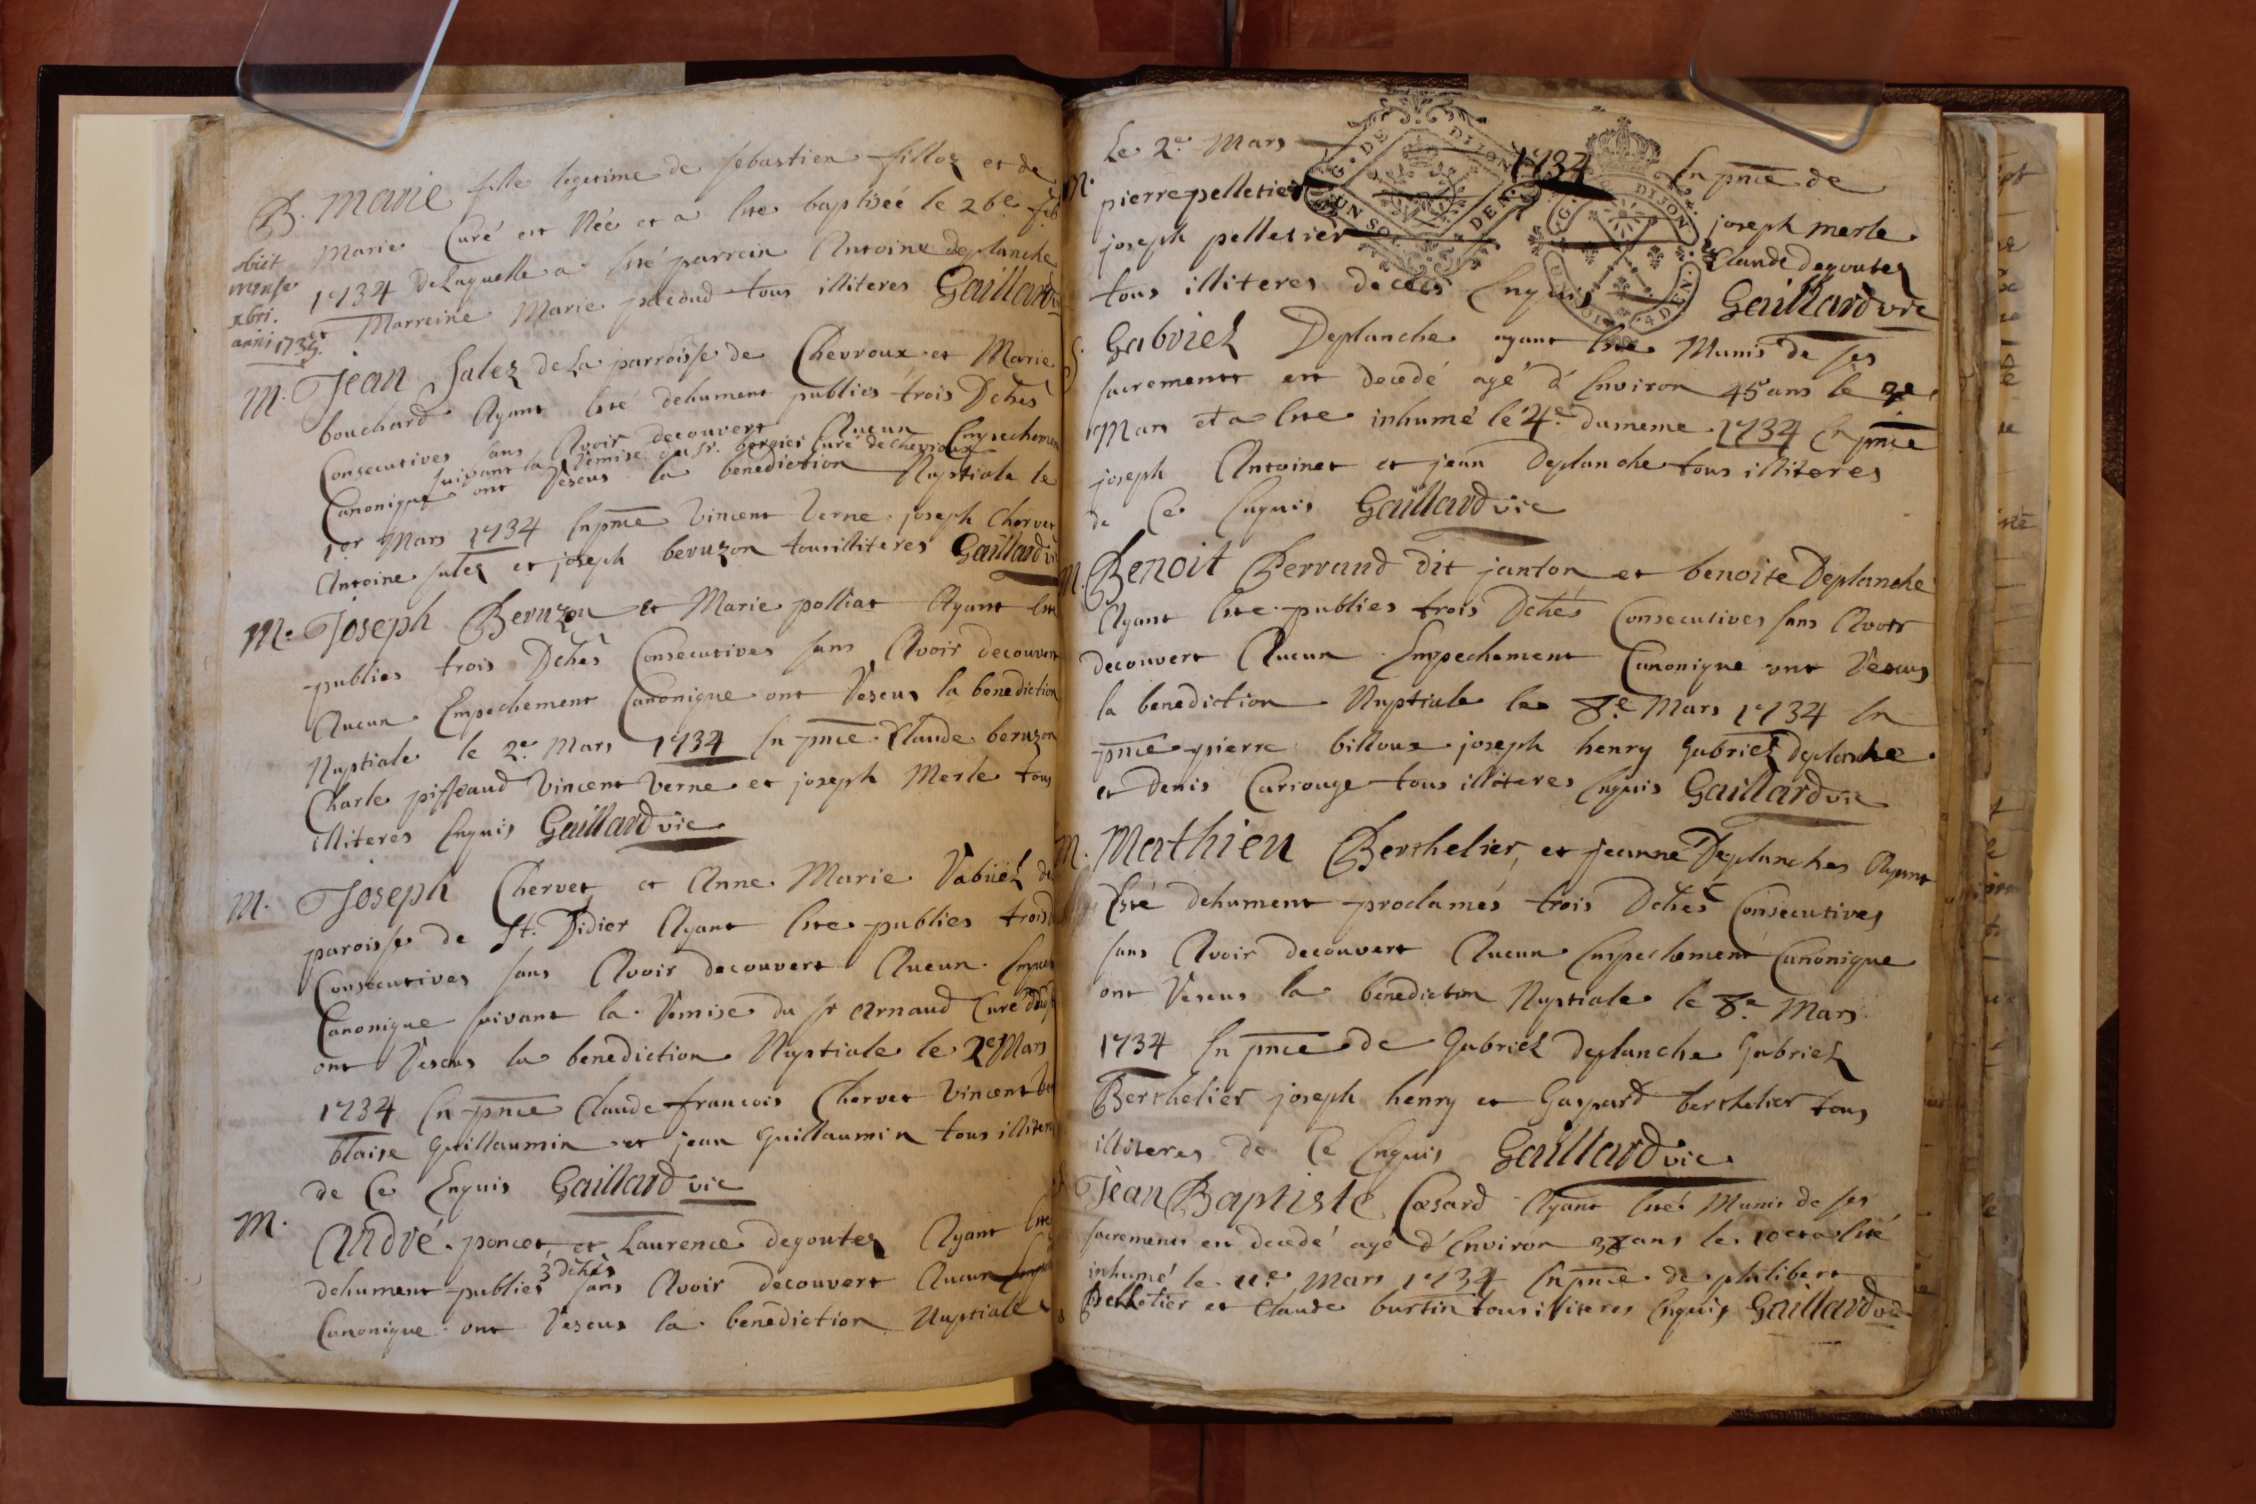 B. Marie fille legitime de sebastien filloz et de
Marie Curé est Née et a Este baptiseé le 26e feb
1734 De Laquelle a Esté parrein Antoine deplanche
et Marreine Marie tous illiteres Gaillard
obiit
mense
xbri.
anni 1734.
M. Jean Salez de La parroisse de Chevroux et Marie
bouchard Ayant Esté dehument publiés trois Dches
Consecutives sans Avoir decouvert Aucun Empechement
suivant la Remise du Sr. bergier Curé de Chevroux
Canonique ont Reseus la benediction Nuptiale le
1er Mars 1734 En pnce Vincent Verne joseph Chervet
Antoine salez et joseph beruzon tous illiteres Gaillard vi
M. Joseph Beruzon et Marie polliat Ayant Este
publiés trois Dches Consecutives sans Avoir decouvert
Aucun Empechement Canonique ont Reseus la benediction
Nuptiale le 2e Mars 1734 En pnce Claude beruzon
Charle piffeaud Vincent Verne et joseph Merle tous
illiteres Enquis Gaillard vic
M. Joseph Chervet et Anne Marie Rabüel de
paroisse de St. Didier Ayant Este publies trois
Consecutives sans Avoir decouvert Aucun Empec
Canonique suivant la Remise du sr Arnaud Curé
ont Reseus la benediction Nuptiale le 2e Mars
1734 En pnce Claude francois Chervet Vincent Ver
blaise Guillaumin et jean Guillaumin tous illiteres
de Ce Enquis Gaillard vic
M. André poncet et Laurence degoutez Ayant Este
dehument publies 3 dches sans Avoir decouvert Aucun
Canonique ont Reseus la benediction Nuptiale
Le 2e Mars 1734 En pnce de
pierre pelletier joseph merle
joseph pelletier Claude degoutez
tous illiteres de ces Enquis Gaillard vic
G. DE DIJON UN SOL DEN.
G. DIJON 4 DEN.
S. Gabriel Deplanche ayant Este Munis de ses
sacrements est decedé agé d'Environ 45 ans le 3e
Mars et a Este inhumé le 4e du meme 1734 En pnce
joseph Antoinet et jean Deplanche tous illiteres
de Ce Enquis Gaillard vic
M. Benoit Berraud dit janton et benoite Deplanche
Ayant Este publies trois Dches Consecutives sans Avoir
decouvert Aucun Empechement Canonique ont Reseus
la benediction Nuptiale le 8e Mars 1734 En
pnce pierre billoux joseph henry Gabriel deplanche
et denis Cariouge tous illiteres Enquis Gaillard vic
M. Mathieu Berthelier et jeanne Deplanches Ayant
Esté dehument proclamés trois Dches Consecutives
sans Avoir decouvert Aucun Empechement Canonique
ont Reseus la benediction Nuptiale le 8e Mars
1734 En pnce de Gabriel deplanche Gabriel
Berthelier joseph henry et Gaspard berthelier tous
illiteres de Ce Enquis Gaillard vic
Jean Baptiste Cœsard Ayant Esté Munis de ses
sacrements est decedé agé d'Environ ans le 10 et a Esté
inhumé le 11e Mars 1734 En pnce de philibert
Pelletier et Claude burtin tous illiteres Enquis Gaillard vic